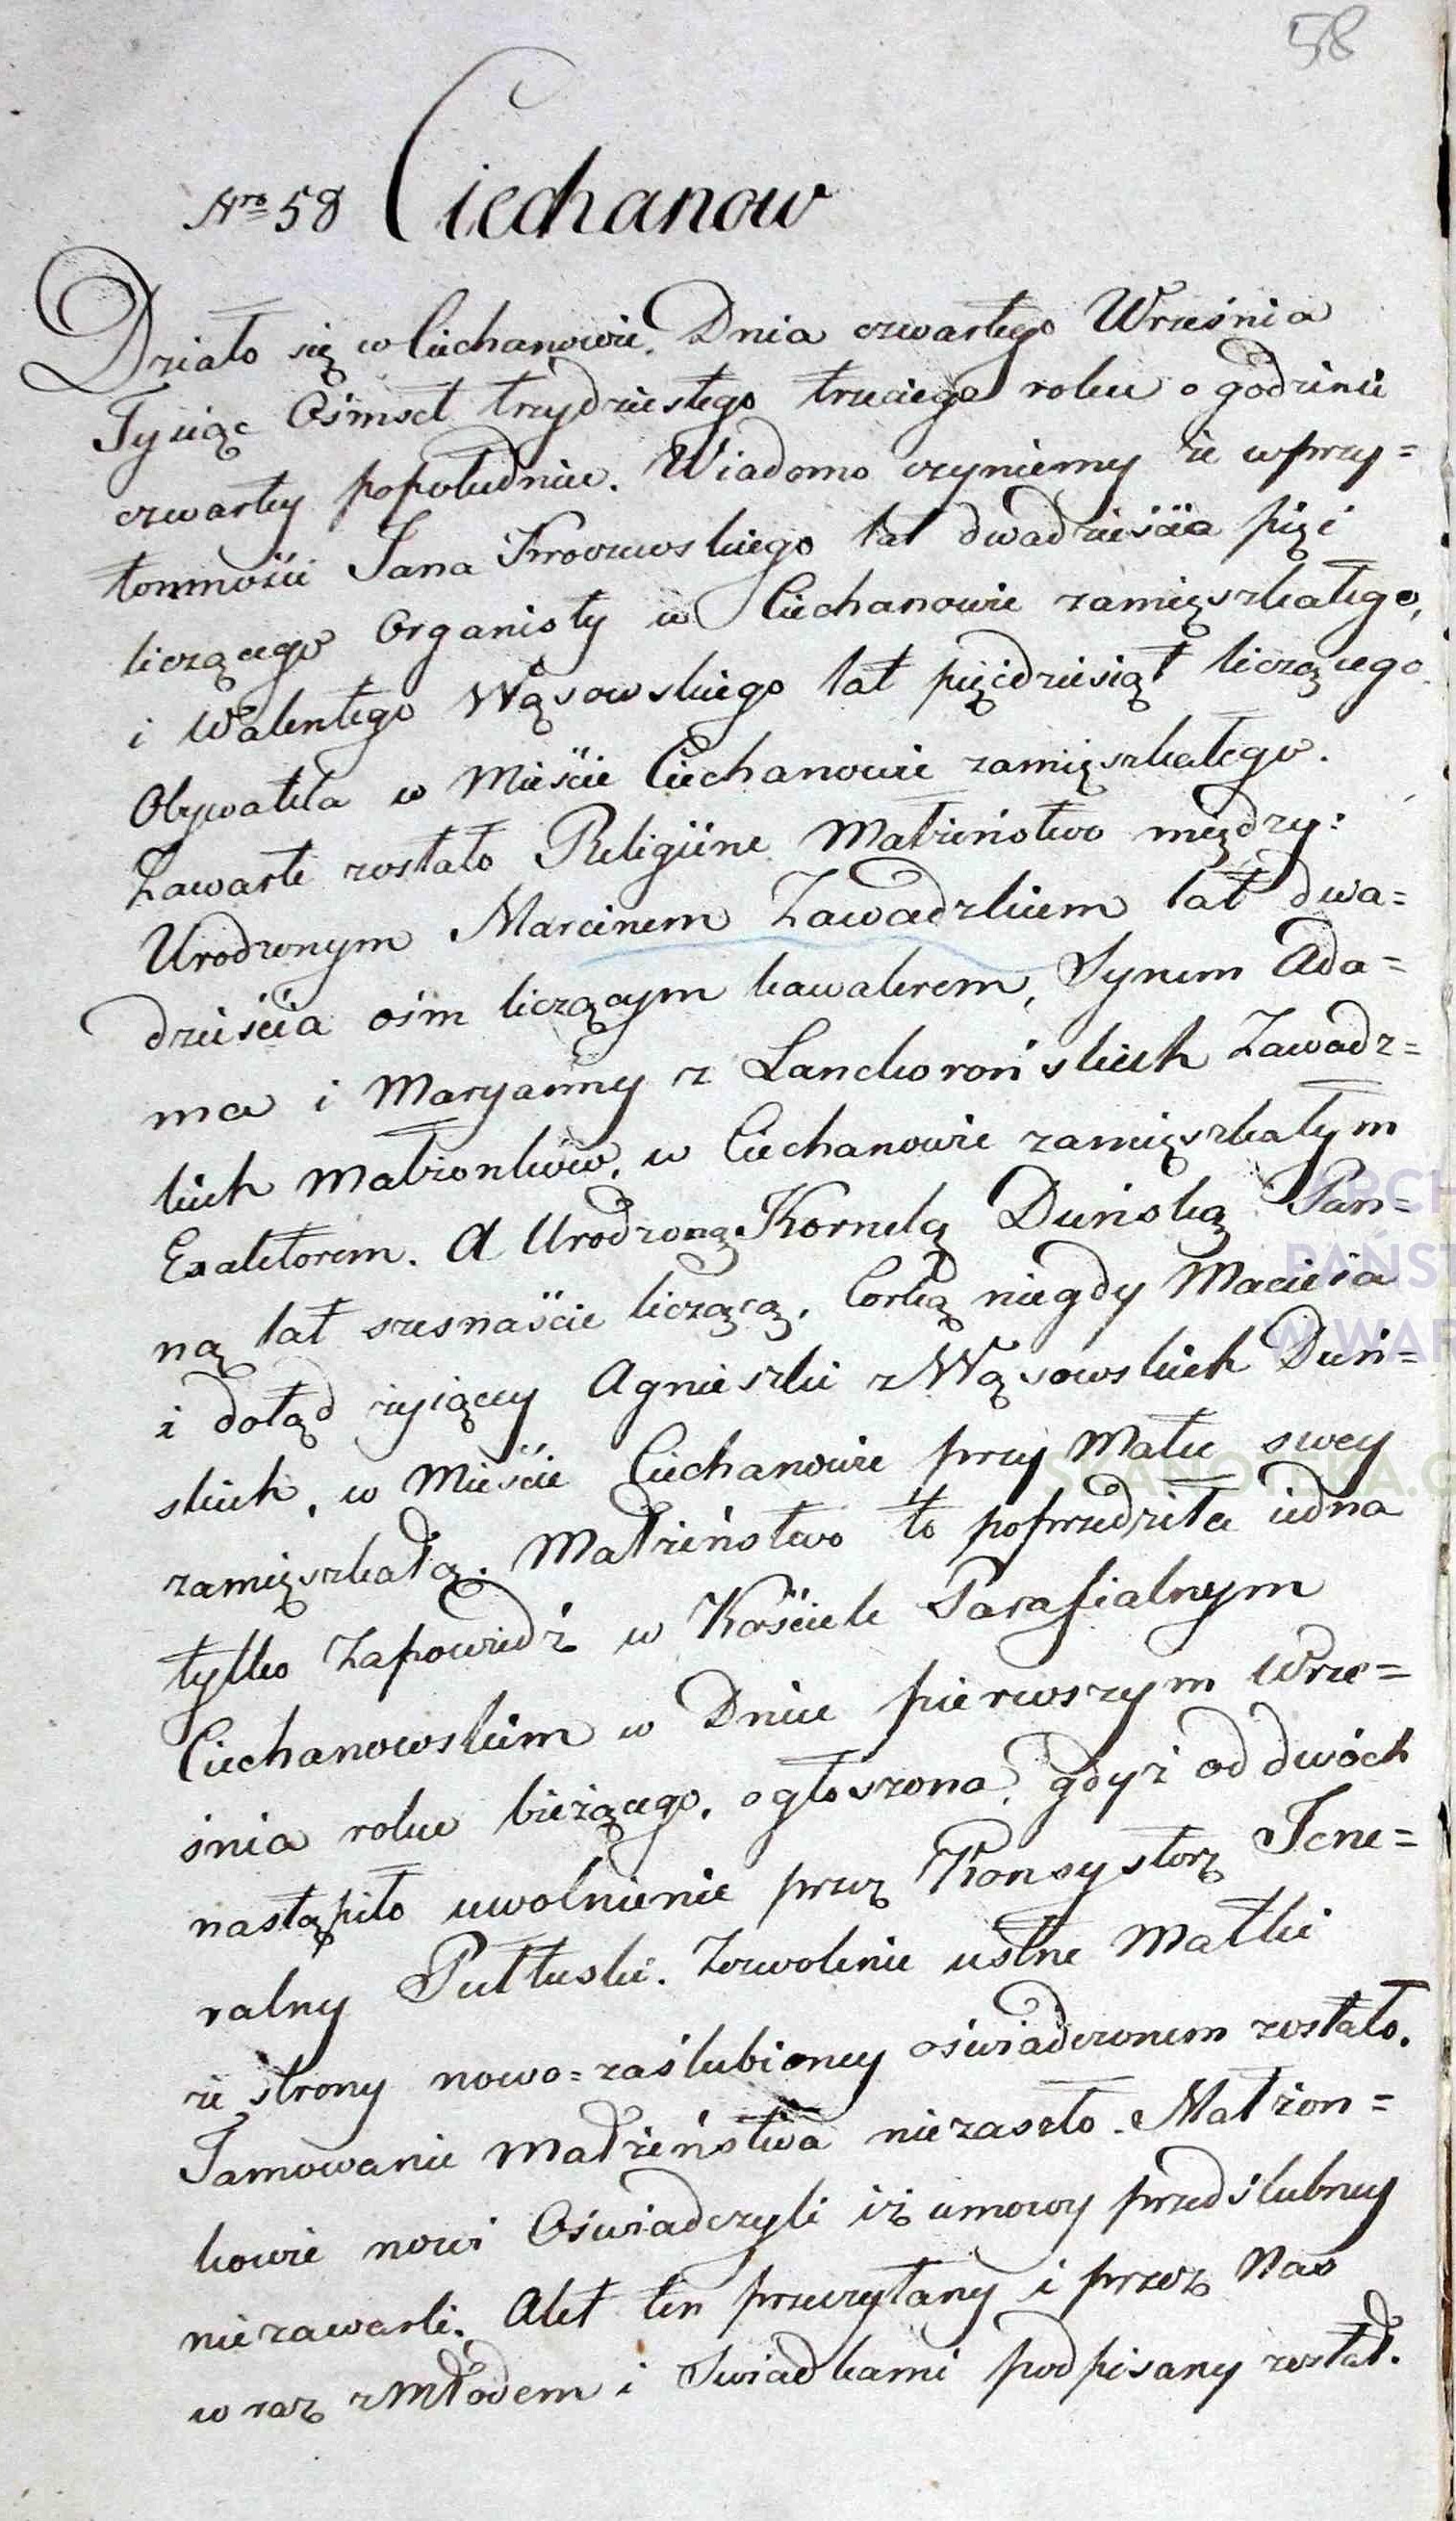 58
Nro 58 Ciechanow
Działo się w Ciechanowie. Dnia czwartego Września
Tysiąc Ośmset trzydziestego trzeciego roku o godzinie
czwartey popołudniu. Wiadomo czyniemy że w przy=
tomności Jana lat dwadzieścia pięć
liczącego Organisty w Ciechanowie zamięszkałego,
i Walentego Wąsowskiego lat pięćdziesiąt liczącego
Obywatela w Mieście Ciechanowie zamięszkałego.
Zawarte zostało Religijne Małżeństwo między:
Urodzonym Marcinem Zawadzkiem lat dwa=
dzieścia ośm liczącym kawalerem, Synem Ada=
ma i Maryanny z Lanckorońskich Zawadz=
kich Małżonków, w Ciechanowie zamięszkałym
Exaktorem. A Urodzoną Kornelą Duńską Pan=
ną lat szesnaście liczącą, Corką niegdy Macieia
i dotąd żyiącey Agnieszki z Wąsowskich Duń=
skich, w Mieście Ciechanowie przy Matce swey
zamięszkałą. Małżeństwo to poprzedziła iedna
tylko Zapowiedź w Kościele Parafialnym
Ciechanowskim w Dniu pierwszym Wrze=
śnia roku bieżącego, ogłoszona, gdyż od dwóch
nastąpiło uwolnienie przez Konsystorz Jene=
ralny Pułtuski. Zezwolenie ustne Matki
ze strony nowo=zaślubioney oświadczonem zostało.
Tamowanie Małżeństwa niezaszło. Małżon=
kowie nowi Oświadczyli iż umowy przedślubney
niezawarli. Akt ten przeczytany i przez Nas
wraz z Młodem i Swiadkami podpisany został.
ARCH
PAŃST
W WAR
SKANOTEKA.G